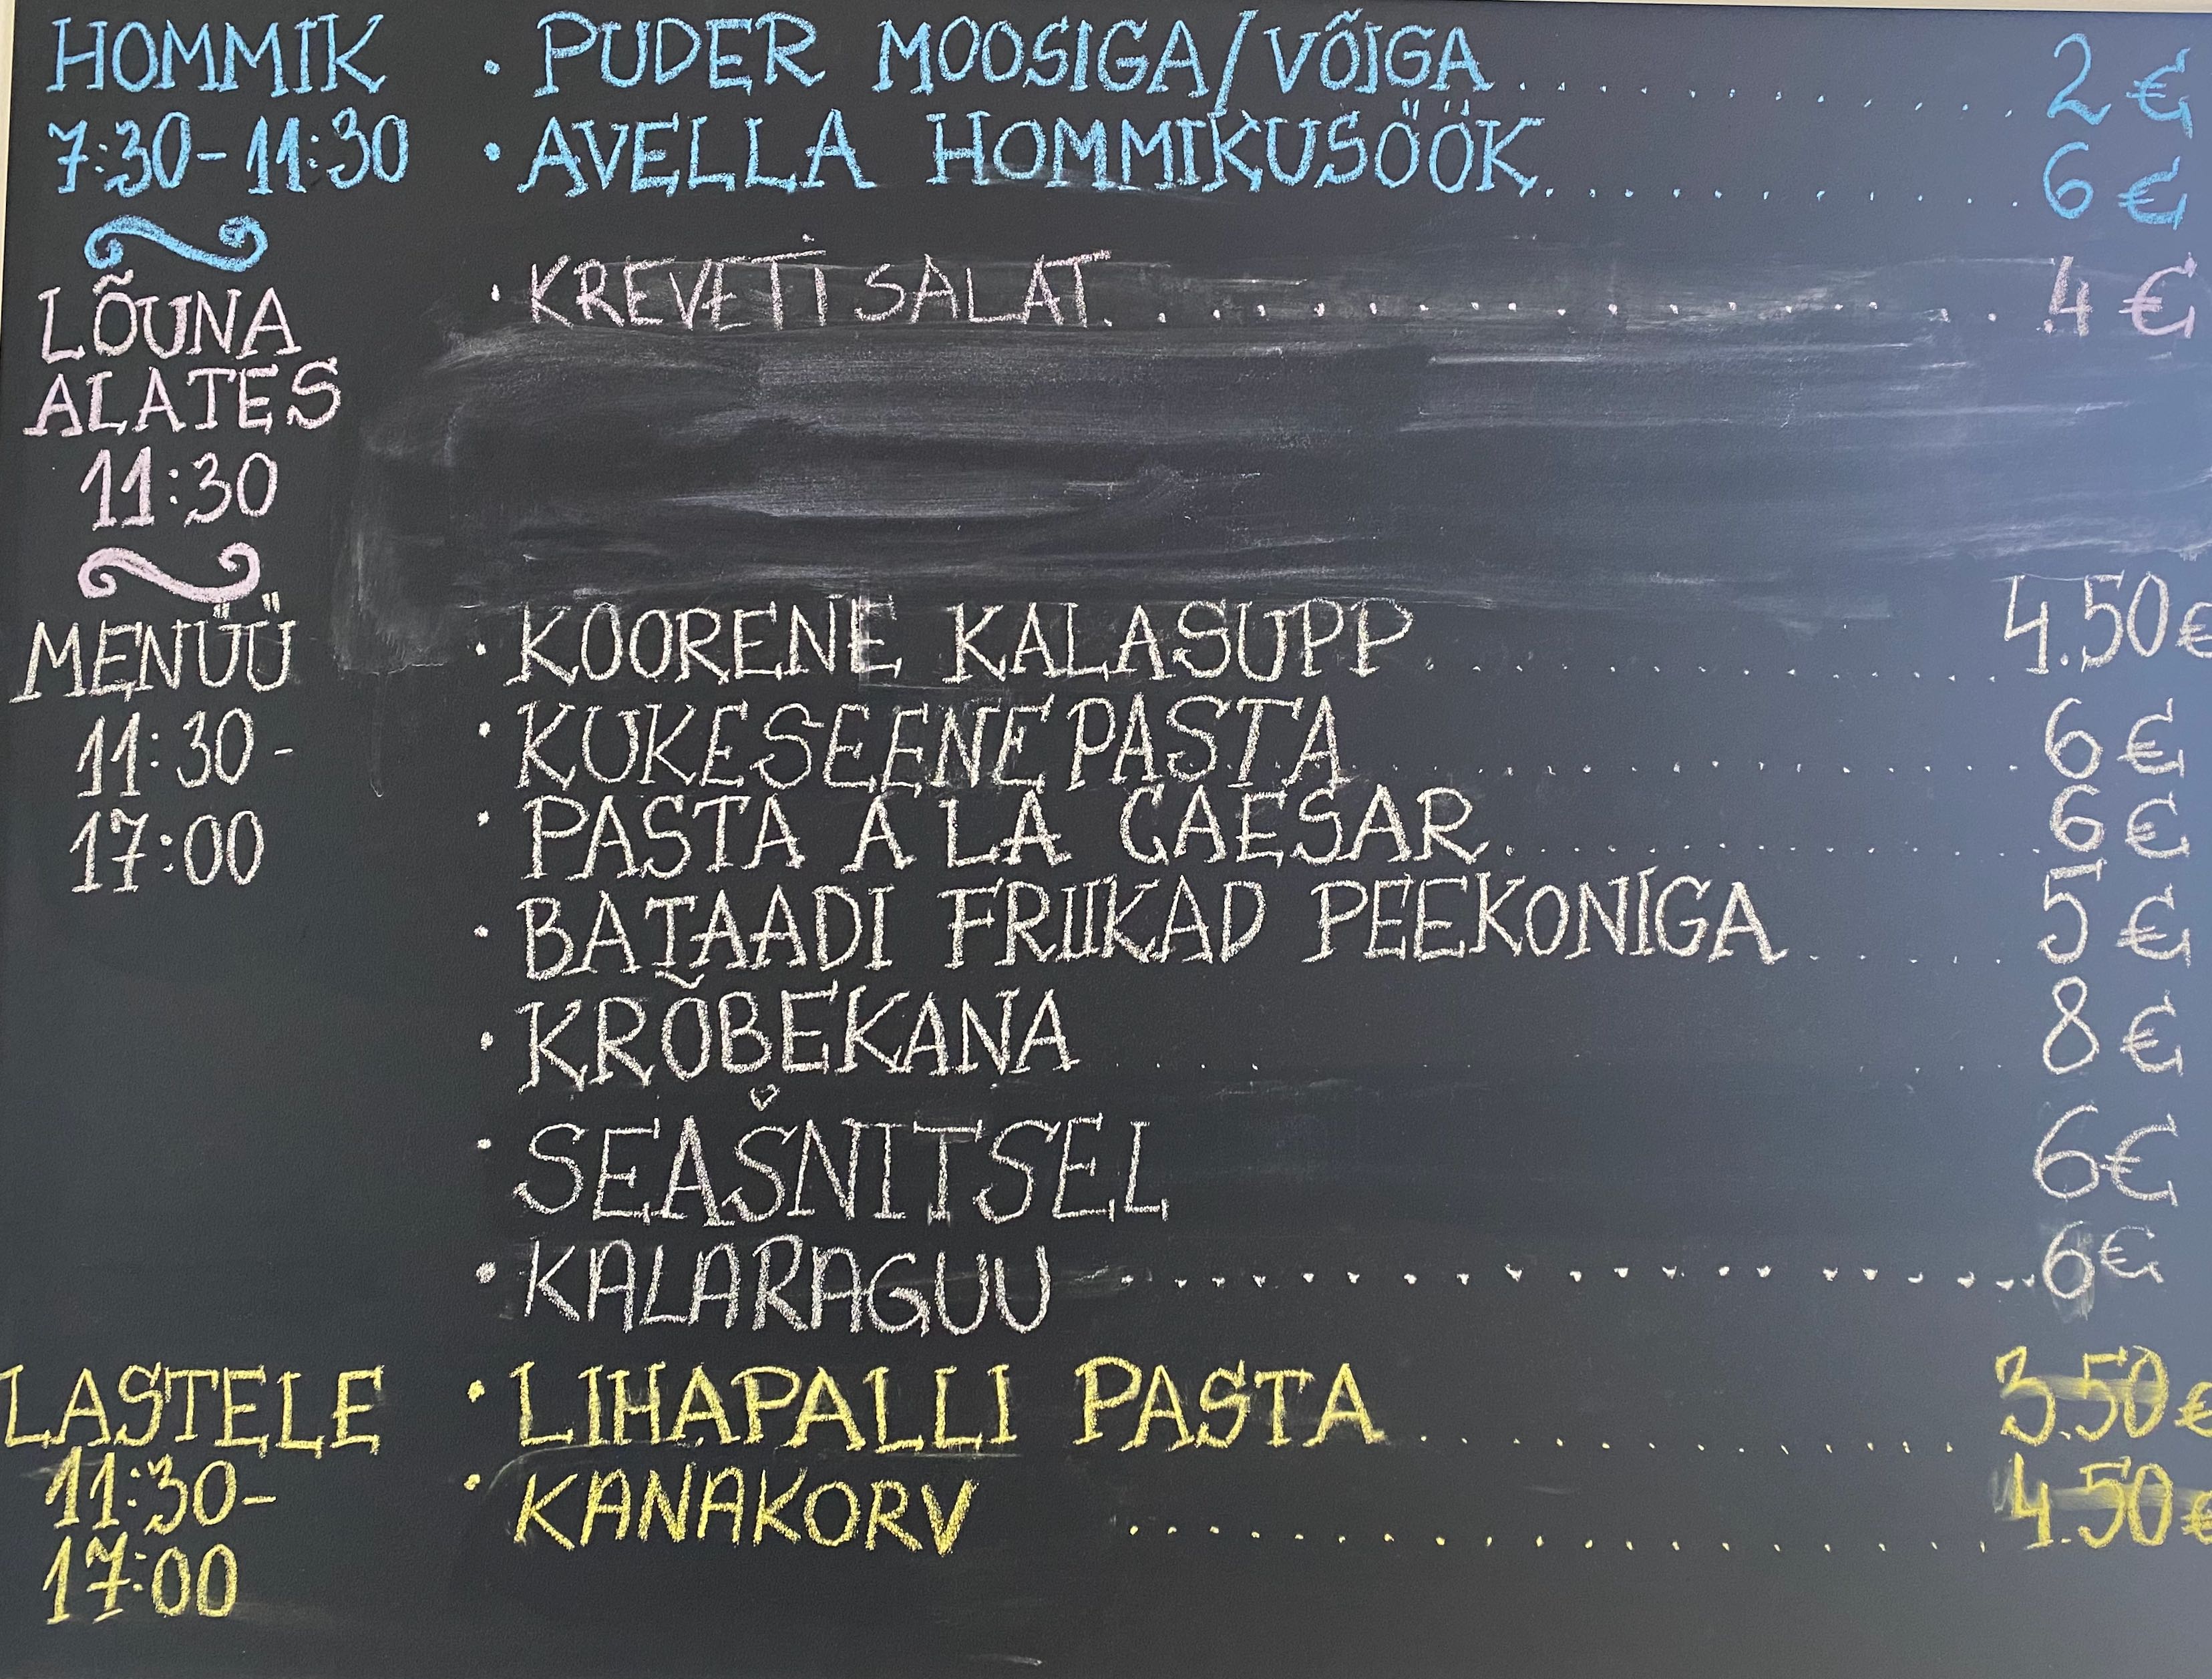 HOMMIK
7:30-11:30
• PUDER MOOSIGA/VÕIGA 2 €
• AVELLA HOMMIKUSÖÖK 6 €
LÕUNA
ALATES
11:30
• KREVETISALAT 4 €
MENÜÜ
11:30-
17:00
• KOORENE KALASUPP 4.50€
• KUKESEENEPASTA 6 €
• PASTA A LA CAESAR 6 €
• BATAADI FRIIKAD PEEKONIGA 5 €
• KRÕBEKANA 8 €
• SEAŠNITSEL 6€
• KALARAGUU 6€
LASTELE
11:30-
17:00
• LIHAPALLI PASTA 3.50€
• KANAKORV 4.50€